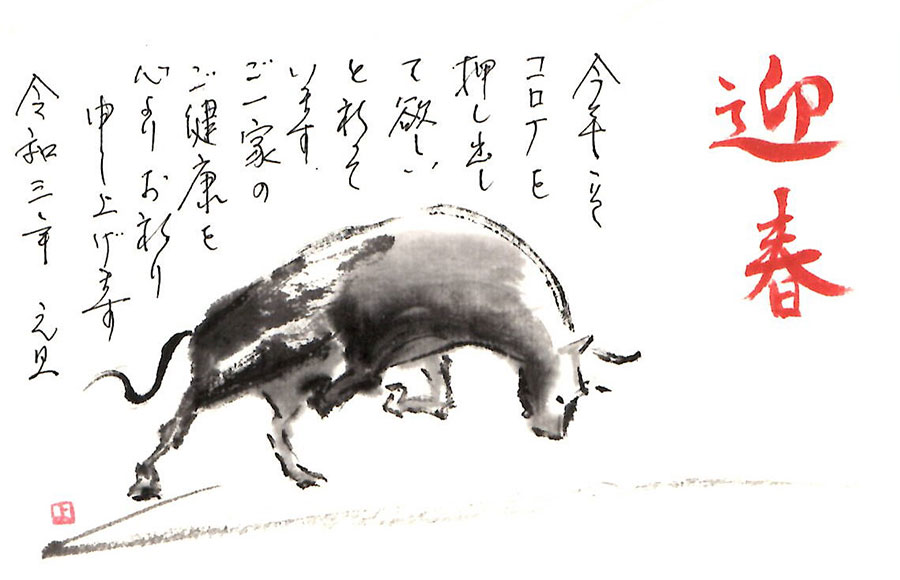 迎春
今年こそ
コロナを
押し出し
て欲しい
と祈って
います.
ご一家の
ご健康を
心よりお祈り
申し上げます
令和三年 元旦